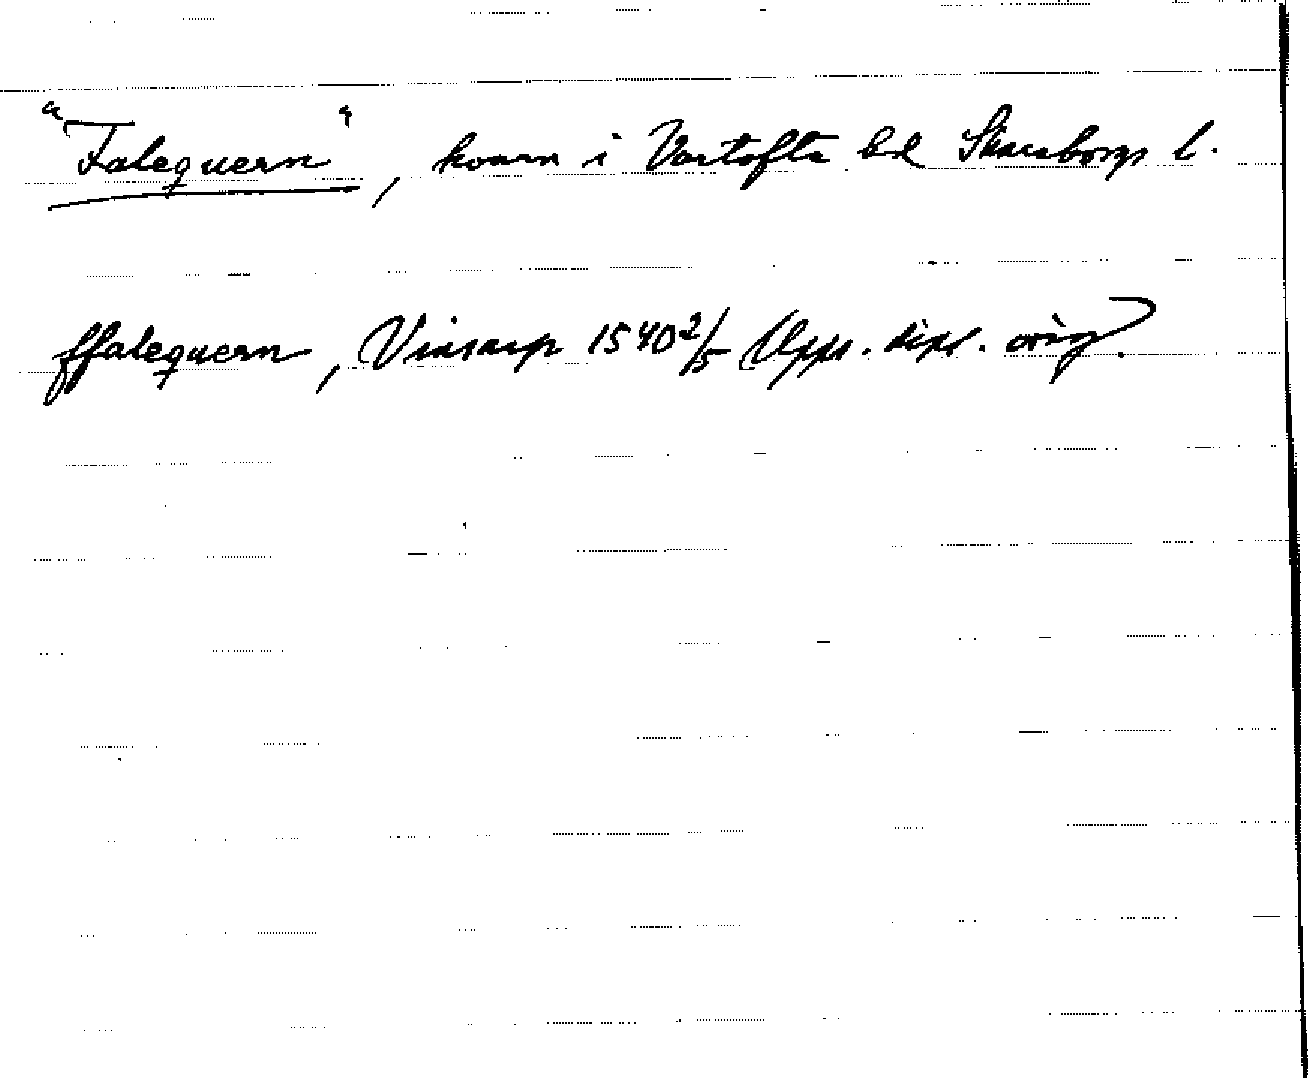 "Falequern", kvarn i Vartofta hd Skaraborgs l.
ffalequern, Vinsarp 1540 2/5 Upps. dipl. orig.